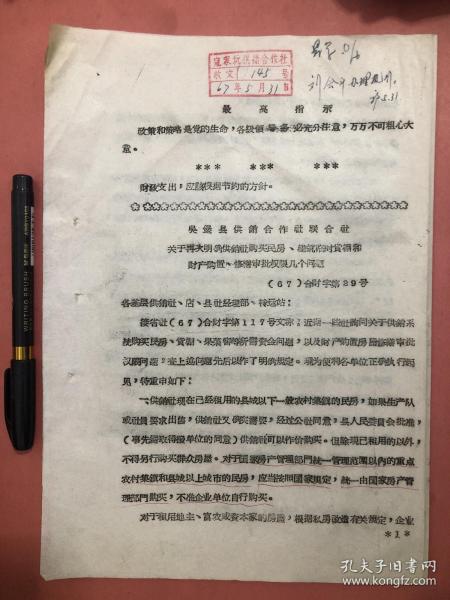 收文 145 号
67年5月31日
5.31
最高指示
政策和策略是党的生命,各级领导务必充分注意,万万不可粗心大
意。
*** *** ***
财政支出,应该根据节约的方针。
吴县供销合作社联合社
关于再次明确供销社购买民房、建筑材料货棚和
财产购置、修缮审批权限几个问题
(67)合财字第29号
各基层供销社、店、县社经理部、转运站:
接省社(67)合财字第117号文称:近期一些社询问关于供销系
统购买民房、货棚、果菜窖的所需资金问题,以及财产购置房屋修缮审批
权限问题,省上述问题先后以作了明确规定。现为便利各单位正确执行起
见,特重申如下:
一、供销社现在已经租用的县城以下一般农村集镇的民房,如果生产队
或社员要求出售,供销社又确实需要,经过公社同意,县人民委员会批准,
(事先需取得授单位的同意)供销社可以作价购买。但除现已租用的以外,
不得另行购买群众房屋。对于国家房产管理部门统一管理范围以内的重点
农村集镇和县城以上城市的民房,应当按照国家规定,统一由国家房产管
理部门购买,不准企业单位自行购买。
对于租用地主、富农或资本家的房屋,根据私房改造有关规定,企业
*1*
孔夫子旧书网
kongfz.com